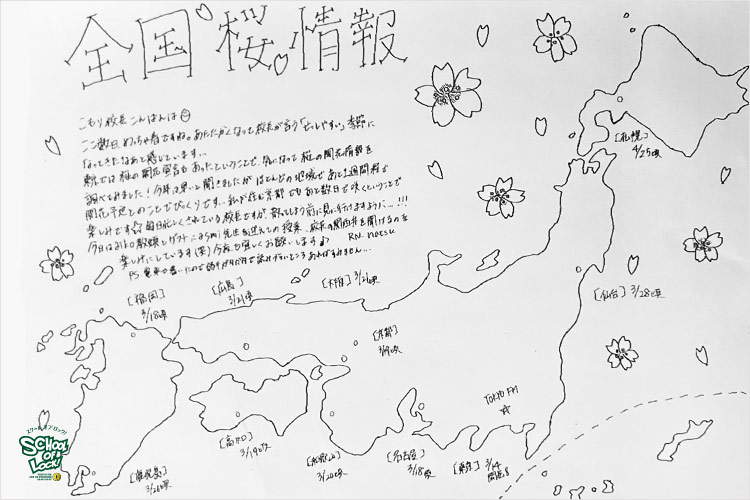 全国桜情報
こもり校長こんばんは
ここ数日、めっちゃ春ですね。あたたかくなって校長が言う「せしやすい」季節に
なってきたなぁと感じています…
東京では桜の開花宣言もあったということで、気になって桜の開花情報を
調べてみました！今年は早いと聞きましたがほとんどの地域であと1週間程で
開花予想とのことでびっくりです。私が住む京都でもあと数日で咲くということで
楽しみです☆毎日忙しくされている校長ですが、散ってしまう前に見に行けますように…!!!
今日はおとの教壇とゲストに
先生を迎えての授業、校長の関西弁を聞けるのを
楽しみにしています(笑)今夜も宜しくお願いします♪
RN.
PS.
[札幌]
4/25頃
[仙台] 3/28頃
[福岡]
3/18頃
[広島]
3/21頃
3/21頃
[京都]
3/19頃
TOKYO FM
☆
[高知]
3/19頃
[鹿児島]
[和歌山]
3/20頃
[名古屋]
3/18頃
[東京] 3/14
開花
スクールオブロック!
SCHOOL
OF
LOCK!